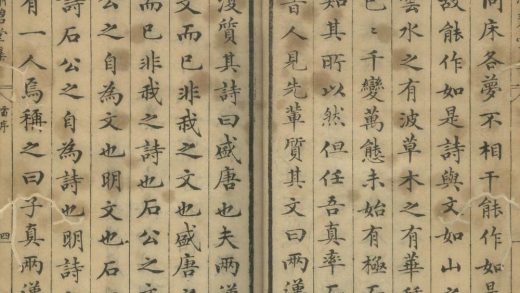 同床各夢不相干能作如是
故能作如是詩與文如山之
雲水之有波草木之有華種
千變萬態未始有極
知其所以然但任吾真率
昔人見先輩質其文曰
復質其詩曰盛唐也夫兩漢
文而已非我之文也盛唐之
而已非我之詩也石公之文
之自為文也明文也石
詩石公之自為詩也明詩
有一人焉稱之曰子真兩漢
碧堂集
序
四